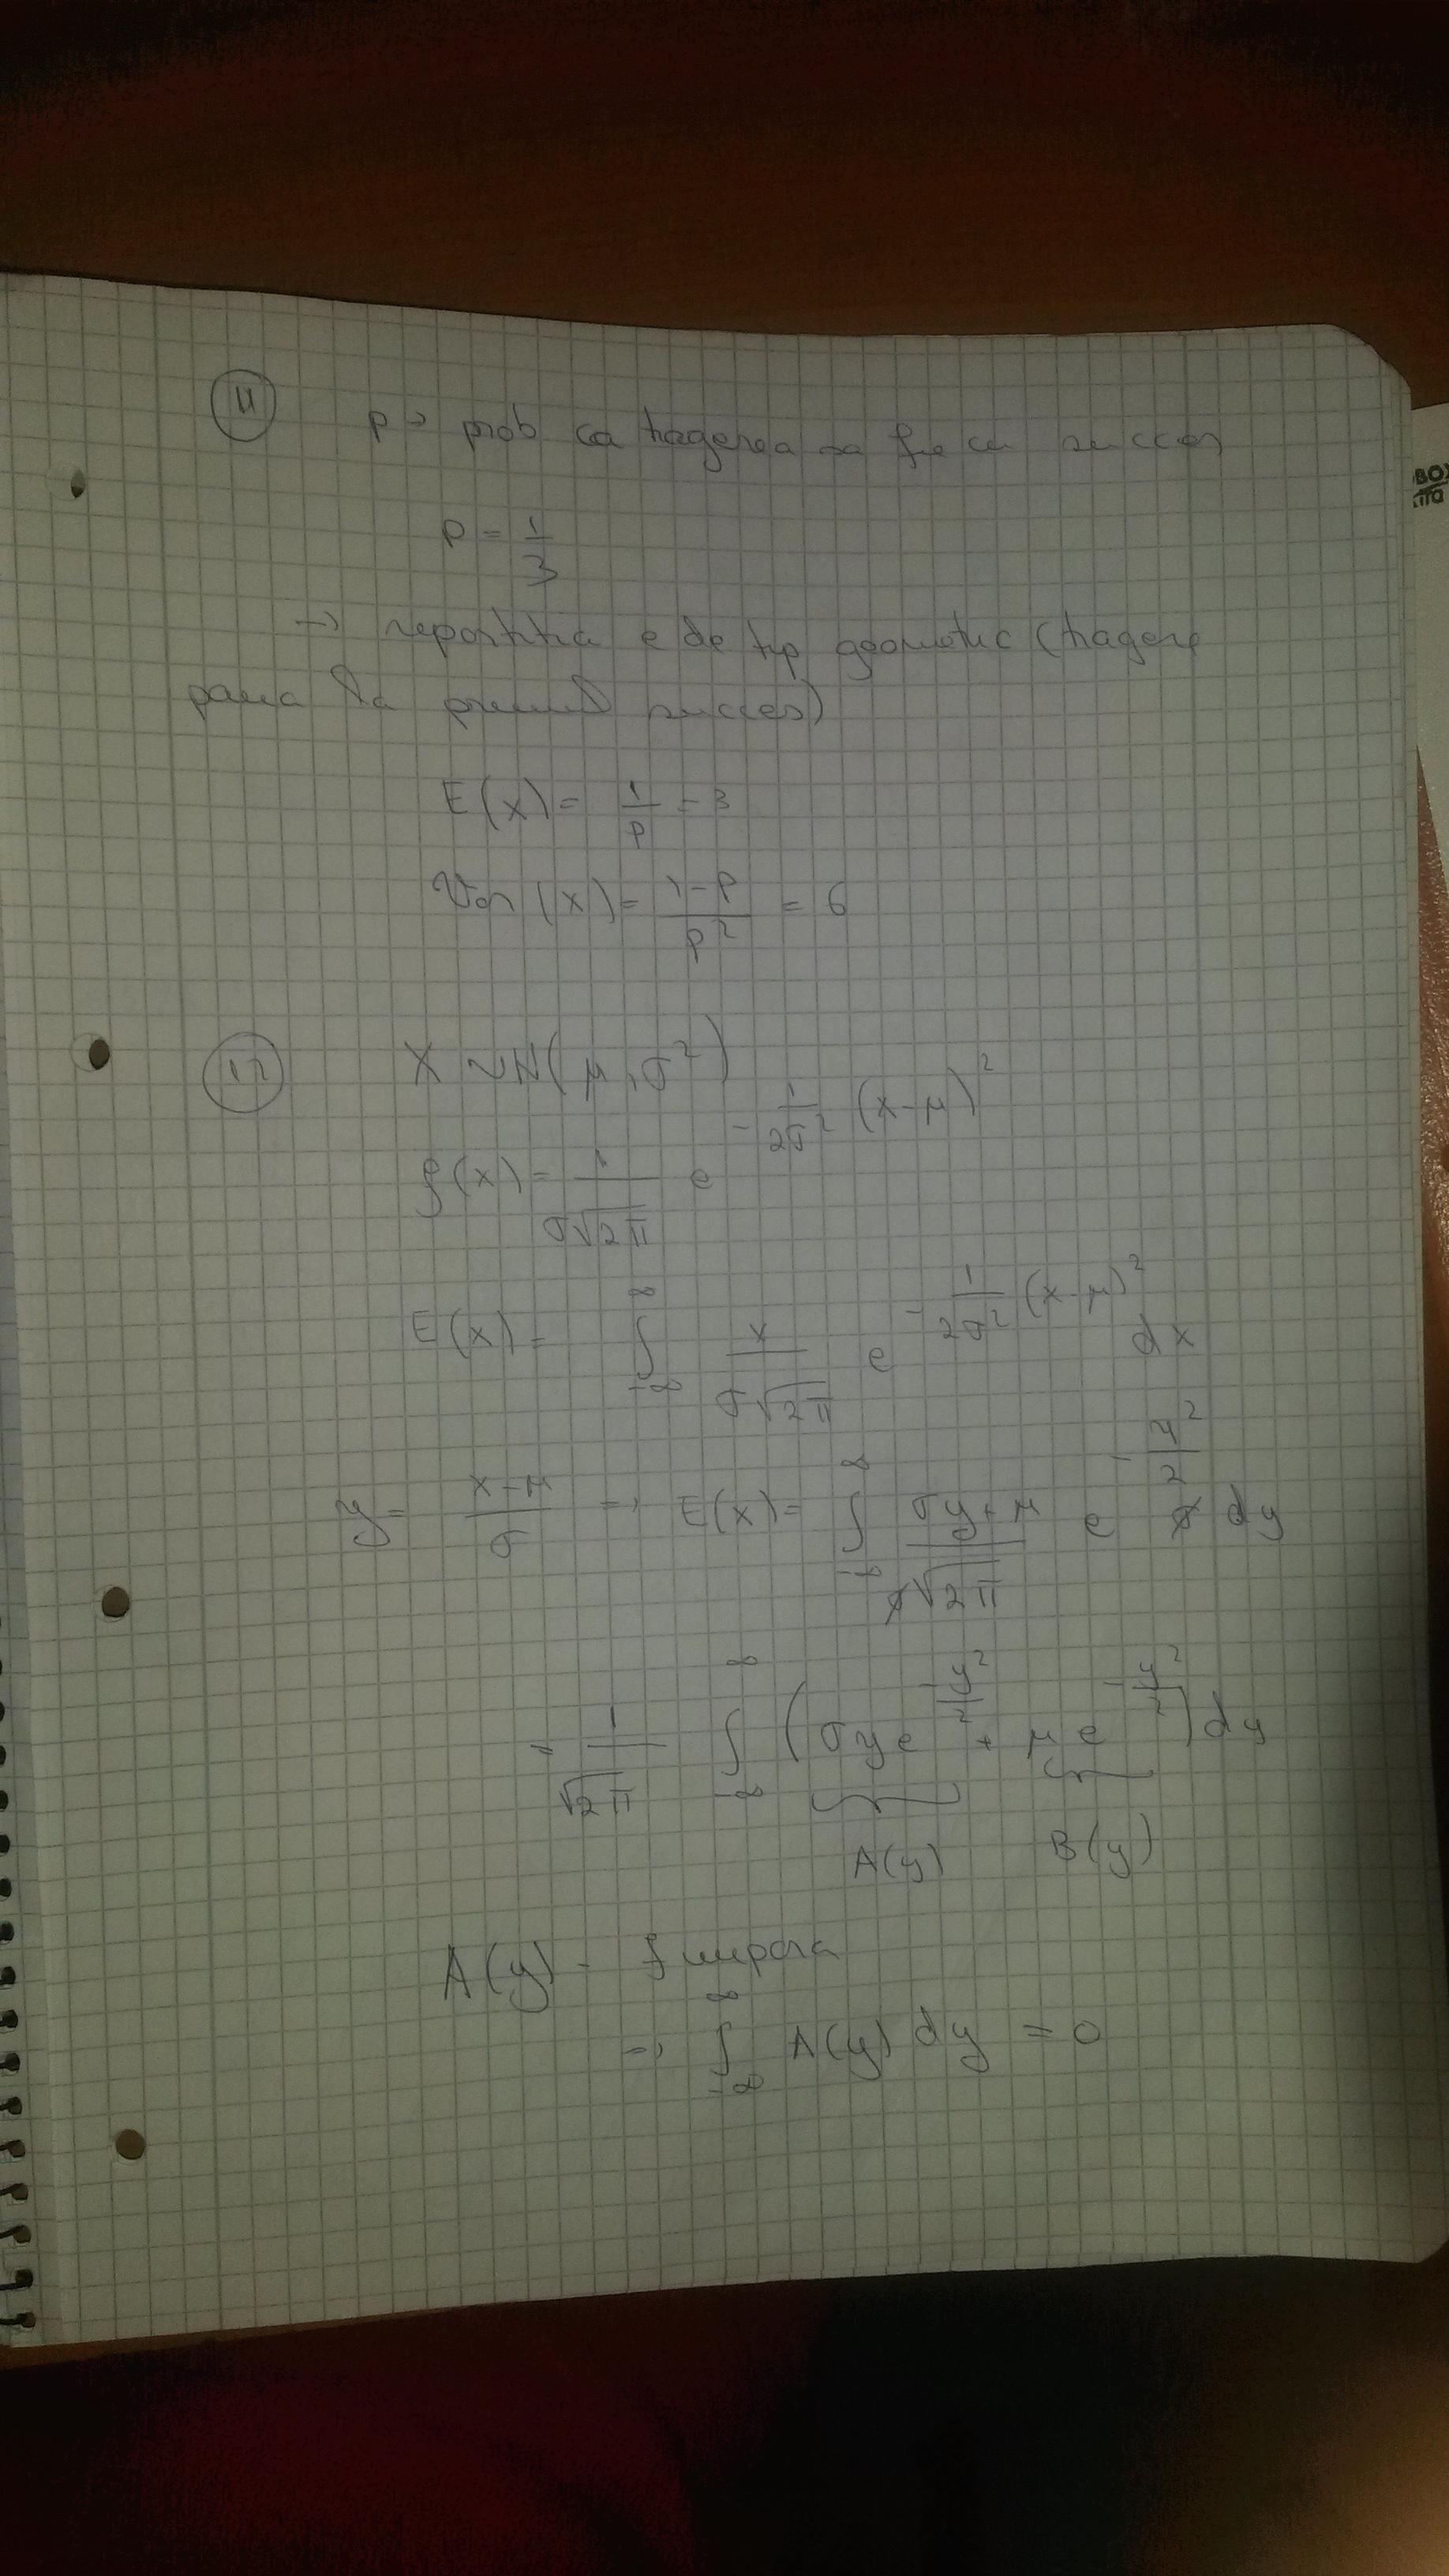 11
p → prob ca tragerea sa fie cu succes
p = 1/3
→ repartitia e de tip geometric (trageri
pana la primul succes)
E(x) = 1/p = 3
Var(x) = (1-p)/p² = 6
12
X ~ N(μ, σ²)
f(x) = 1/(σ√2π) e^(-1/(2σ²) (x-μ)²)
E(x) = ∫_{-∞}^{∞} x/(σ√2π) e^(-1/(2σ²) (x-μ)²) dx
y = (x-μ)/σ → E(x) = ∫_{-∞}^{∞} (σy+μ)/(σ√2π) e^(-y²/2) σ dy
= 1/√2π ∫_{-∞}^{∞} (σy e^(-y²/2) + μ e^(-y²/2)) dy
A(y) B(y)
A(y) - f impara
→ ∫_{-∞}^{∞} A(y) dy = 0
BOX